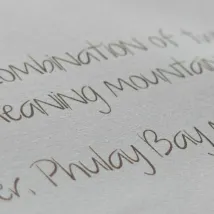 combination of tw
meaning mountai
er. Phulay Bay